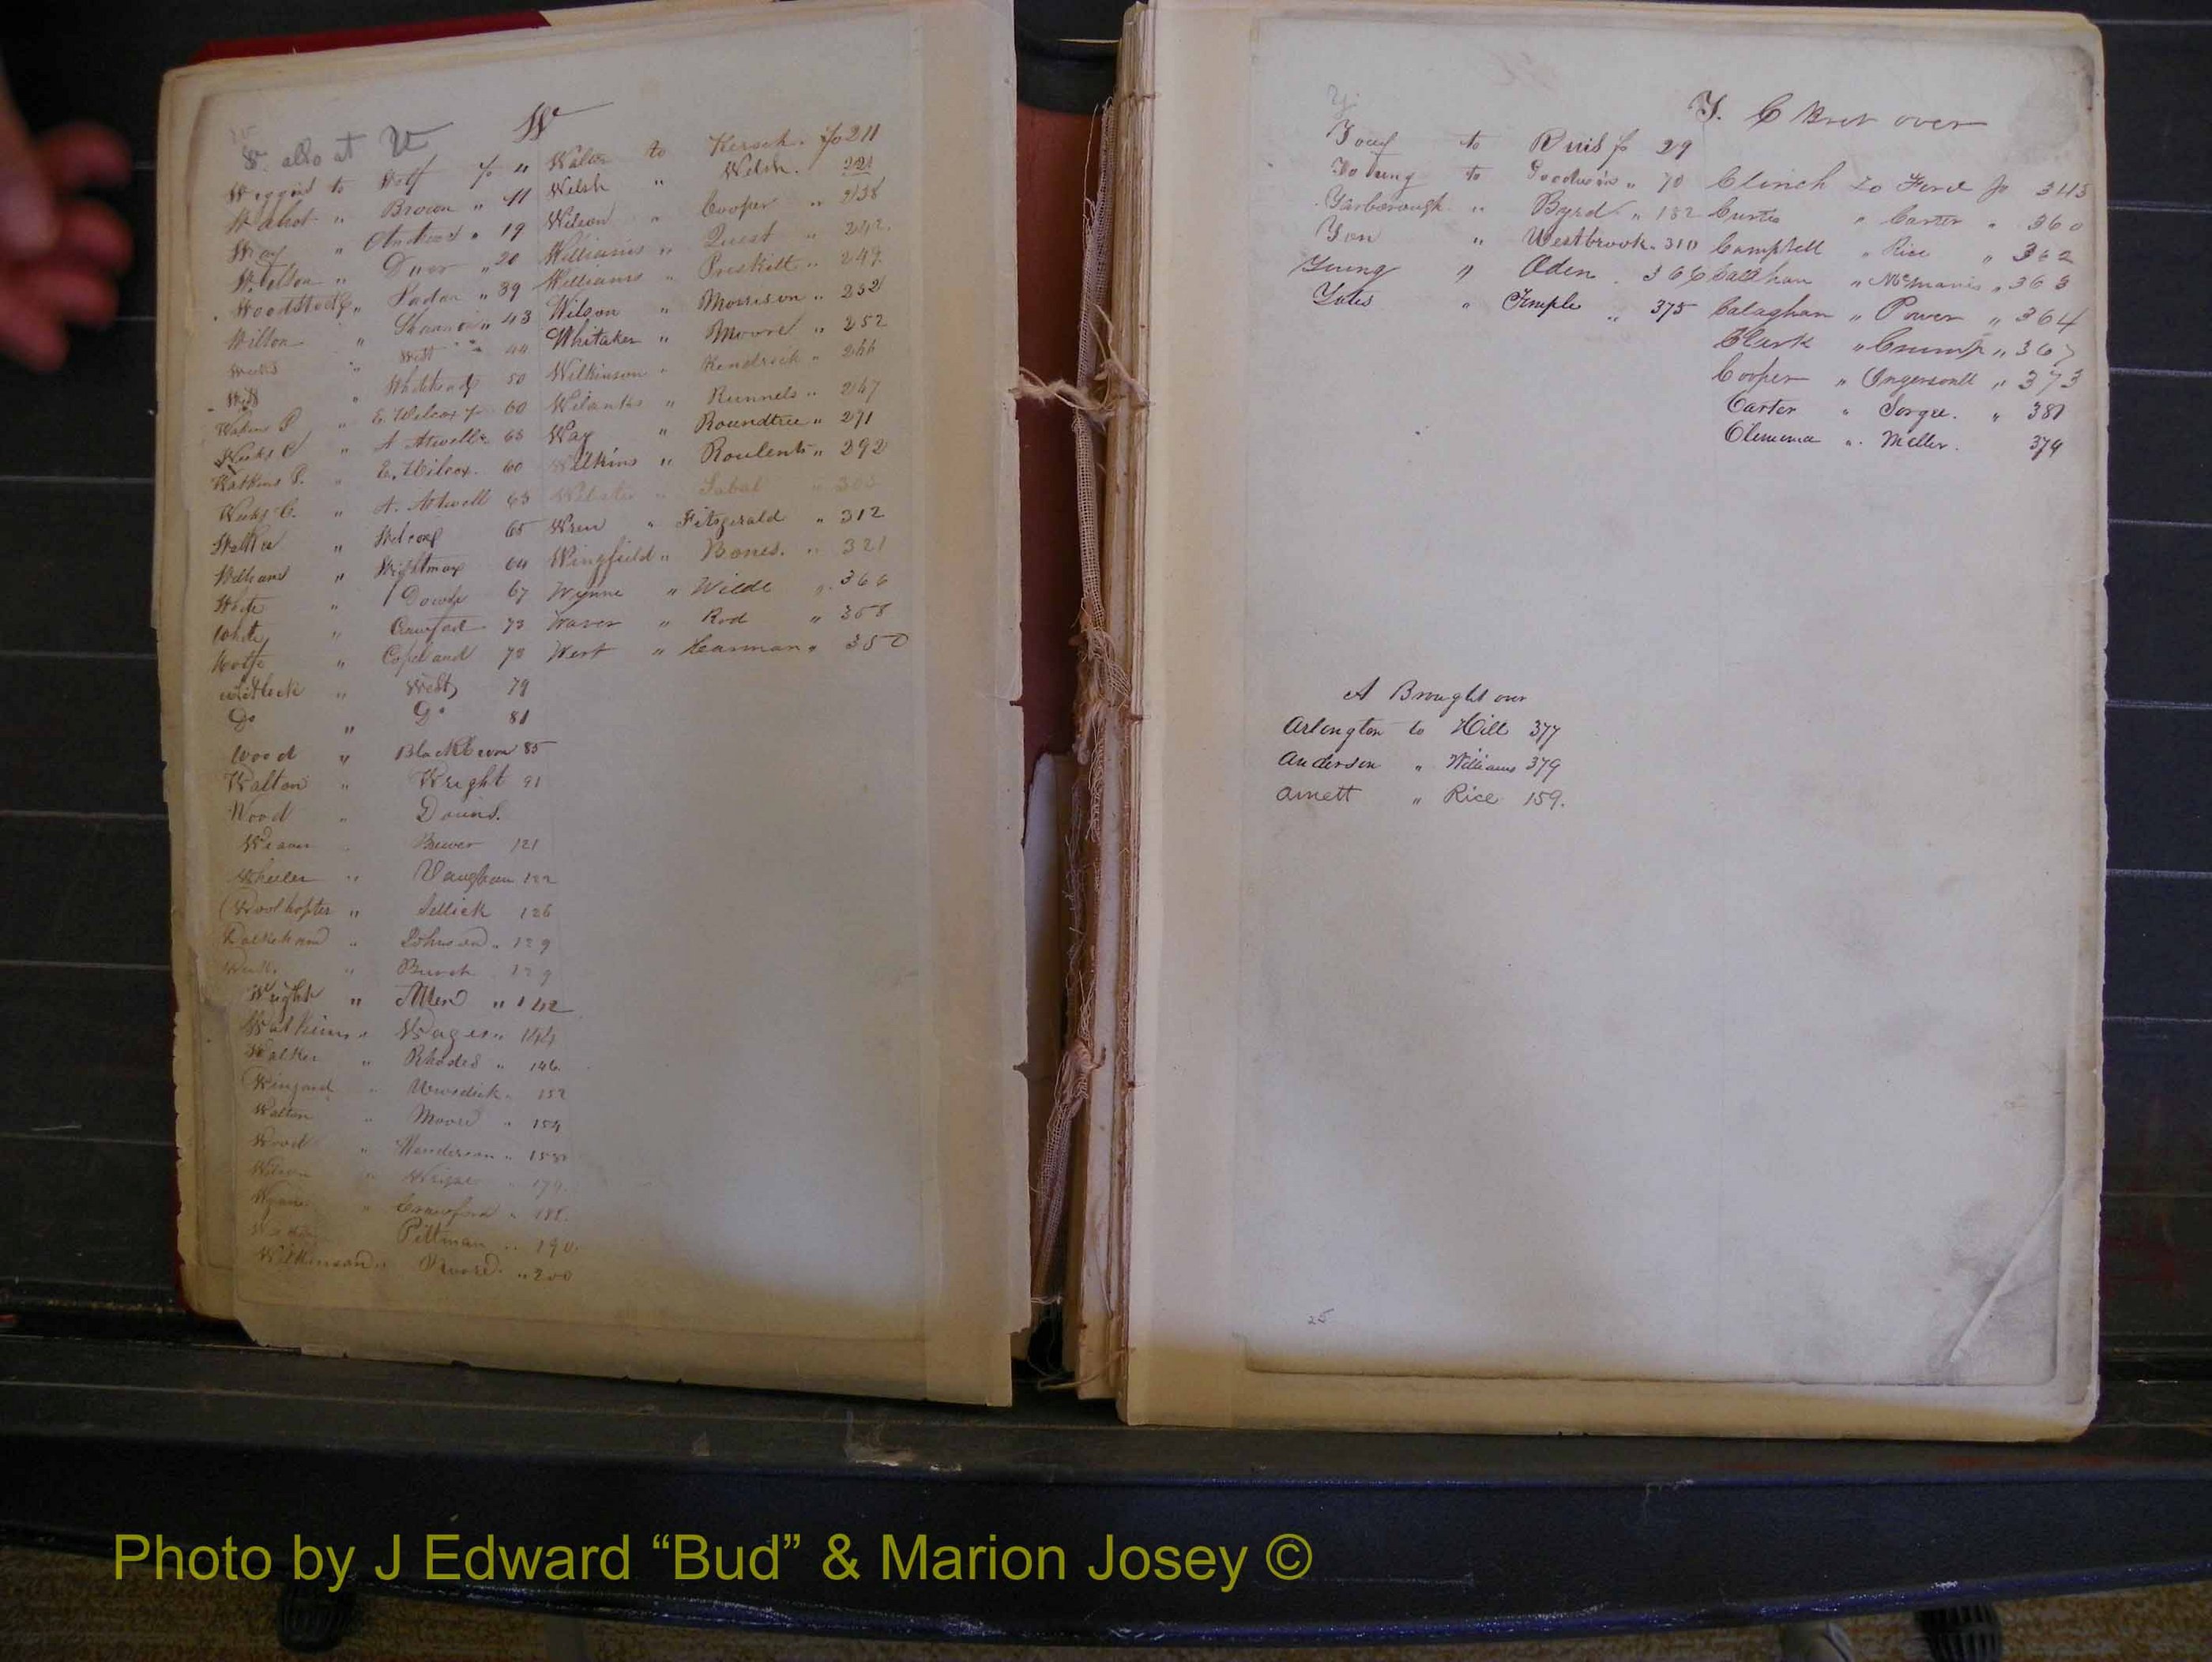 W. also at V
W
Wiggins to Wolf fo 11
" Brown " 11
Way " Andrews " 19
" Duer " 20
" Sadar " 39
Wilton " Shannon " 43
Weeks " West " 44
Will " Whitehead 50
Watkins P " E. Wilcox fo 60
Weeks C " A Atwell 63
Watkins P. " E. Wilcox. 60
Weeks C. " A. Atwell 63
" Wilcox 65
" Wightman 64
White " Dowly 67
White " Crawford 73
Wolfe " Copeland 78
Whitlock " West 79
Do " Do 81
Wood " Blackburn 85
Walton " Wright 91
Wood "
Weaver " Brewer 121
Wheeler " Vaughan 122
Woolhopter " Sellick 126
" Johnson " 129
" Burch 129
Wright " Allen " 142
Watkins " Wages " 144
Walker " Rhodes " 146
Wingard " 152
Walton " Moore " 154
Wood " Henderson " 158
Wilson " " 179
" Crawford " 188.
Pittman " 190.
Wilkinson " Moore " 200
Walter to fo 211
Welsh " Welsh. 221
Wilson " Cooper " 238
Williams " Quest " 242.
Williams " Preskitt " 249.
Wilson " Morrison " 252
Whitaker " Moore " 252
Wilkinson " Kendrick " 266
" Runnels " 267
Way " Roundtree " 291
Wilkins " Roulent " 292
Webster " Sabal " 303
Wren " Fitzgerald " 312
Wingfield " Bones. " 321
Wynne " Wilde " 366
Waver " Rod " 358
West " Carman " 350
Y.
Y. C Brot over
to Ruis fo 29
Young to Goodwin " 70
Yarborough " Byrd " 132
Yon " Westbrook " 310
Young " Oden " 366
Yates " Temple " 375
Clinch to Ford fo 343
Curtis " Carter " 360
Campbell " Rice " 362
Callahan " McManis " 363
Calaghan " Power " 364
Clark " Crump " 367
Cooper " Ingersoll " 373
Carter " Sorgee. " 381
" Miller. 379
A Brought over
Arlington to Hill 377
Anderson " Williams 379
Arnett " Rice 159.
25
Photo by J Edward “Bud” & Marion Josey ©